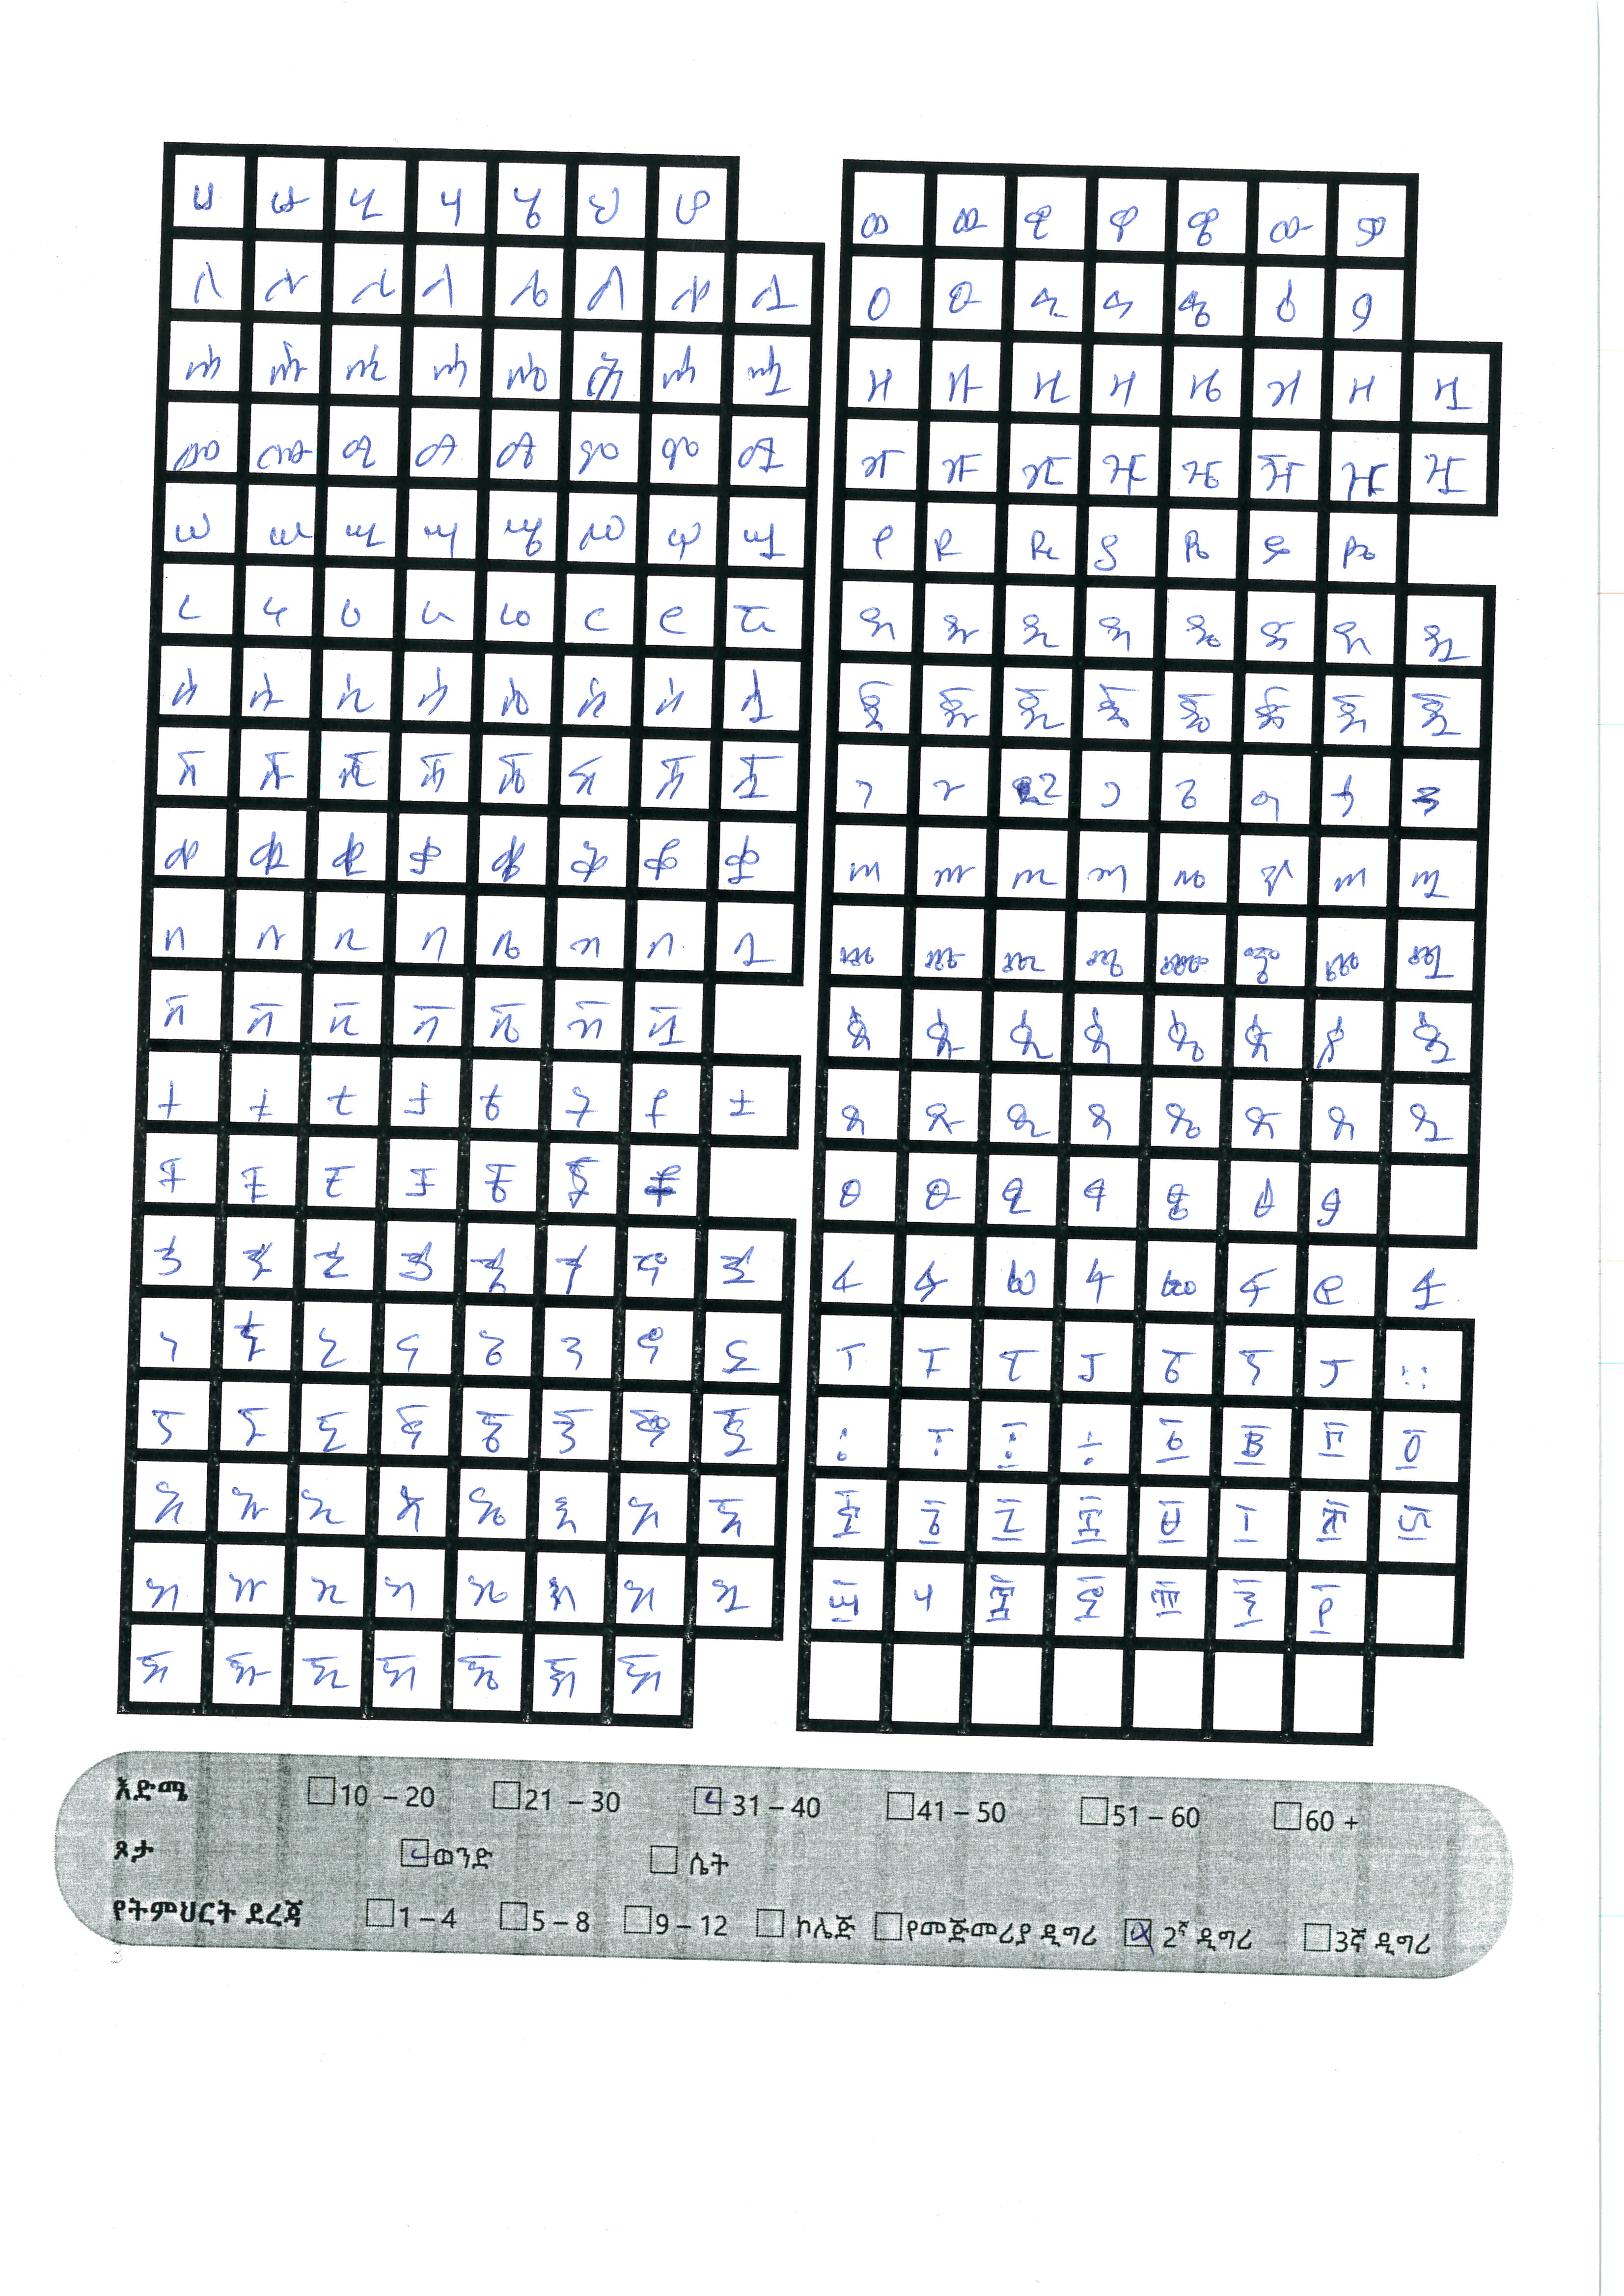 ሀ ሁ ሂ ሃ ሄ ህ ሆ
ለ ሉ ሊ ላ ሌ ል ሎ ሏ
ሐ ሑ ሒ ሓ ሔ ሕ ሖ ሗ
መ ሙ ሚ ማ ሜ ም ሞ ሟ
ሠ ሡ ሢ ሣ ሤ ሥ ሦ ሧ
ረ ሩ ሪ ራ ሬ ር ሮ ሯ
ሰ ሱ ሲ ሳ ሴ ስ ሶ ሷ
ሸ ሹ ሺ ሻ ሼ ሽ ሾ ሿ
ቀ ቁ ቂ ቃ ቄ ቅ ቆ ቋ
በ ቡ ቢ ባ ቤ ብ ቦ ቧ
ቨ ቩ ቪ ቫ ቬ ቭ ቯ
ተ ቱ ቲ ታ ቴ ት ቶ ቷ
ቸ ቹ ቺ ቻ ቼ ች ቾ
ኀ ኁ ኂ ኃ ኄ ኅ ኆ ኋ
ነ ኑ ኒ ና ኔ ን ኖ ኗ
ኘ ኙ ኚ ኛ ኜ ኝ ኞ ኟ
አ ኡ ኢ ኣ ኤ እ ኦ ኧ
ከ ኩ ኪ ካ ኬ ክ ኮ ኳ
ኸ ኹ ኺ ኻ ኼ ኽ ኾ
ወ ዉ ዊ ዋ ዌ ው ዎ
ዐ ዑ ዒ ዓ ዔ ዕ ዖ
ዘ ዙ ዚ ዛ ዜ ዝ ዞ ዟ
ዠ ዡ ዢ ዣ ዤ ዥ ዦ ዧ
የ ዩ ዪ ያ ዬ ይ ዮ
ደ ዱ ዲ ዳ ዴ ድ ዶ ዷ
ጀ ጁ ጂ ጃ ጄ ጅ ጆ ጇ
ገ ጉ ጊ ጋ ጌ ግ ጎ ጓ
ጠ ጡ ጢ ጣ ጤ ጥ ጦ ጧ
ጨ ጩ ጪ ጫ ጬ ጭ ጮ ጯ
ጰ ጱ ጲ ጳ ጴ ጵ ጶ ጷ
ጸ ጹ ጺ ጻ ጼ ጽ ጾ ጿ
ፀ ፁ ፂ ፃ ፄ ፅ ፆ
ፈ ፉ ፊ ፋ ፌ ፍ ፎ ፏ
ፐ ፑ ፒ ፓ ፔ ፕ ፖ ።
እድሜ 10 – 20 21 – 30 31 – 40 41 – 50 51 – 60 60 +
ጾታ ወንድ ሴት
የትምህርት ደረጃ 1 – 4 5 – 8 9 – 12 ኮሌጅ የመጀመሪያ ዲግሪ 2ኛ ዲግሪ 3ኛ ዲግሪ